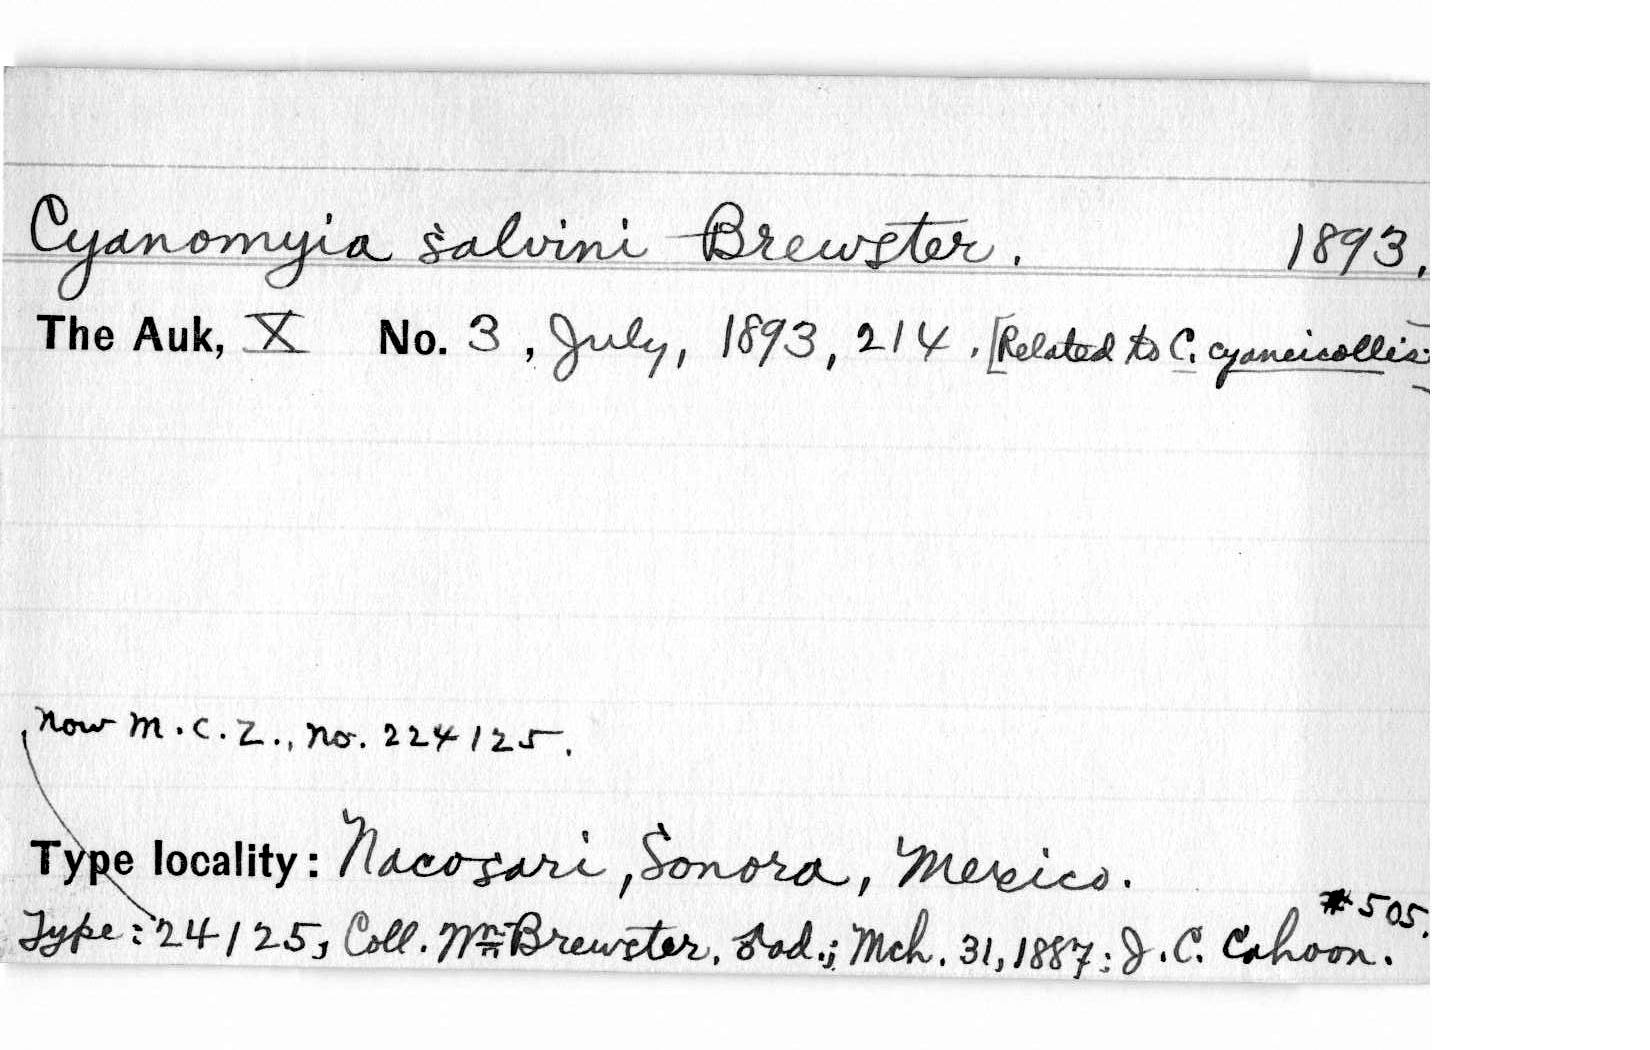 Cyanomyia salvini Brewster. 1893.
The Auk, X No. 3, July, 1893, 214. [Related to C. cyaneicollis]
Now M.C.Z., No. 224125.
Type locality: Nacosari, Sonora, Mexico.
#505.
Type: 24125, Coll. Wm Brewster. ♂ ad.; Mch. 31, 1887; J. C. Cahoon.